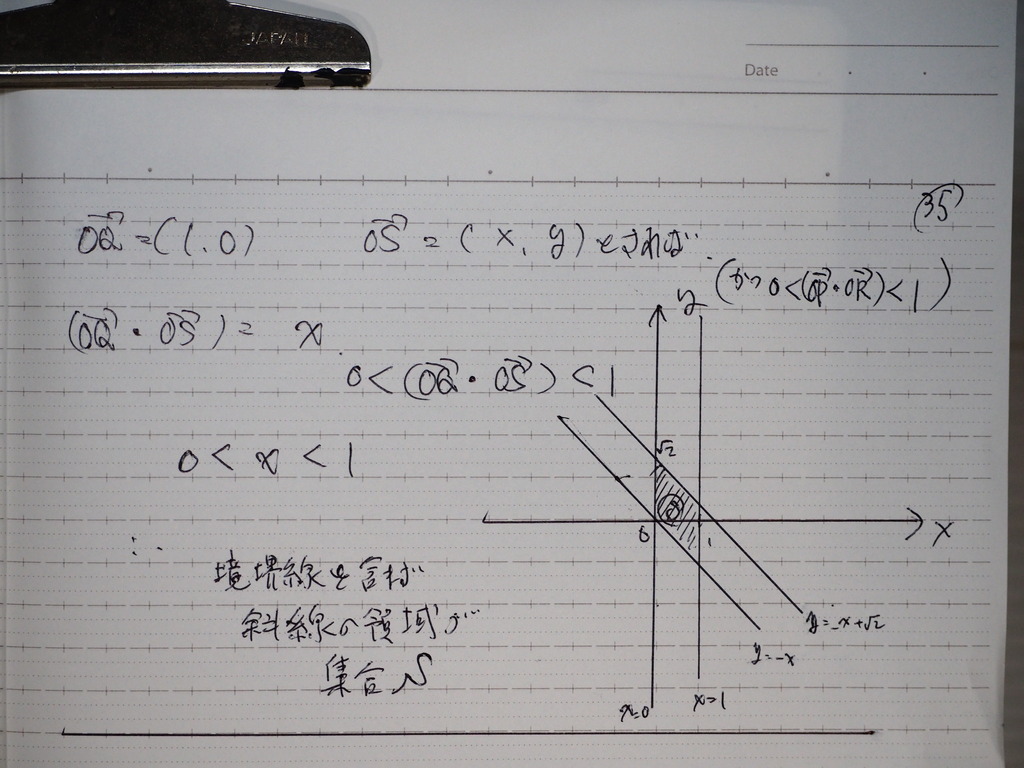 JAPAN
Date
(35)
→OQ = (1, 0) →OS = (x, y) とすれば
(かつ 0<(→OP・→OR)<1)
(→OQ・→OS) = x
0 < (→OQ・→OS) < 1
0 < x < 1
y
√2
0
1
x
∴ 境界線を含まず
斜線の領域が
集合 S
y=-x+√2
y=-x
x=0
x=1